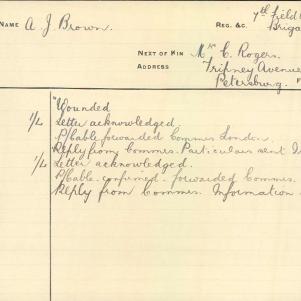 NAME A J Brown. REG. &C. 7th Field
Brigad
NEXT OF KIN Mr C. Rogers.
ADDRESS Avenue
Petersburg.
"Wounded
1/4 Letter acknowledged.
P/Cable forwarded Commes London.
Reply from Commes. Particulars sent
1/4 Letter acknowledged.
P/Cable confirmed. forwarded Commes.
Reply from Commes. Information